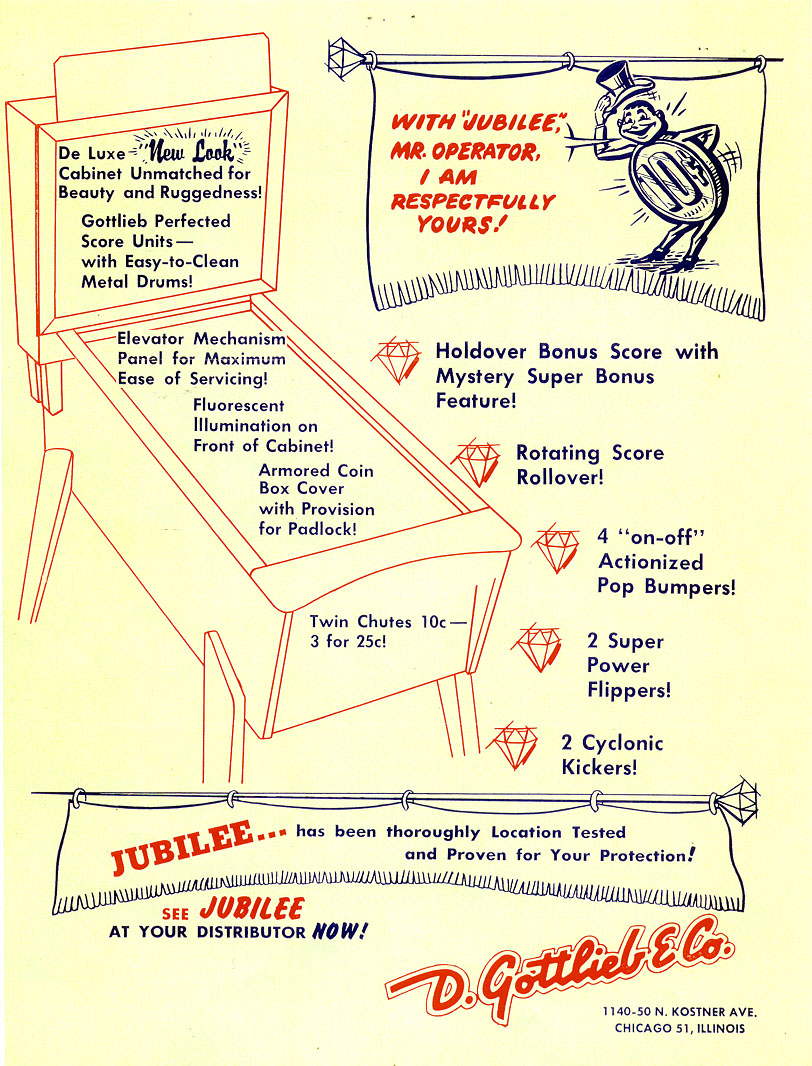 De Luxe "New Look"
Cabinet Unmatched for
Beauty and Ruggedness!
Gottlieb Perfected
Score Units—
with Easy-to-Clean
Metal Drums!
WITH "JUBILEE,"
MR. OPERATOR,
I AM
RESPECTFULLY
YOURS!
10¢
Elevator Mechanism
Panel for Maximum
Ease of Servicing!
Fluorescent
Illumination on
Front of Cabinet!
Armored Coin
Box Cover
with Provision
for Padlock!
Twin Chutes 10c—
3 for 25c!
Holdover Bonus Score with
Mystery Super Bonus
Feature!
Rotating Score
Rollover!
4 "on-off"
Actionized
Pop Bumpers!
2 Super
Power
Flippers!
2 Cyclonic
Kickers!
JUBILEE... has been thoroughly Location Tested
and Proven for Your Protection!
SEE JUBILEE
AT YOUR DISTRIBUTOR NOW!
D. Gottlieb & Co.
1140-50 N. KOSTNER AVE.
CHICAGO 51, ILLINOIS